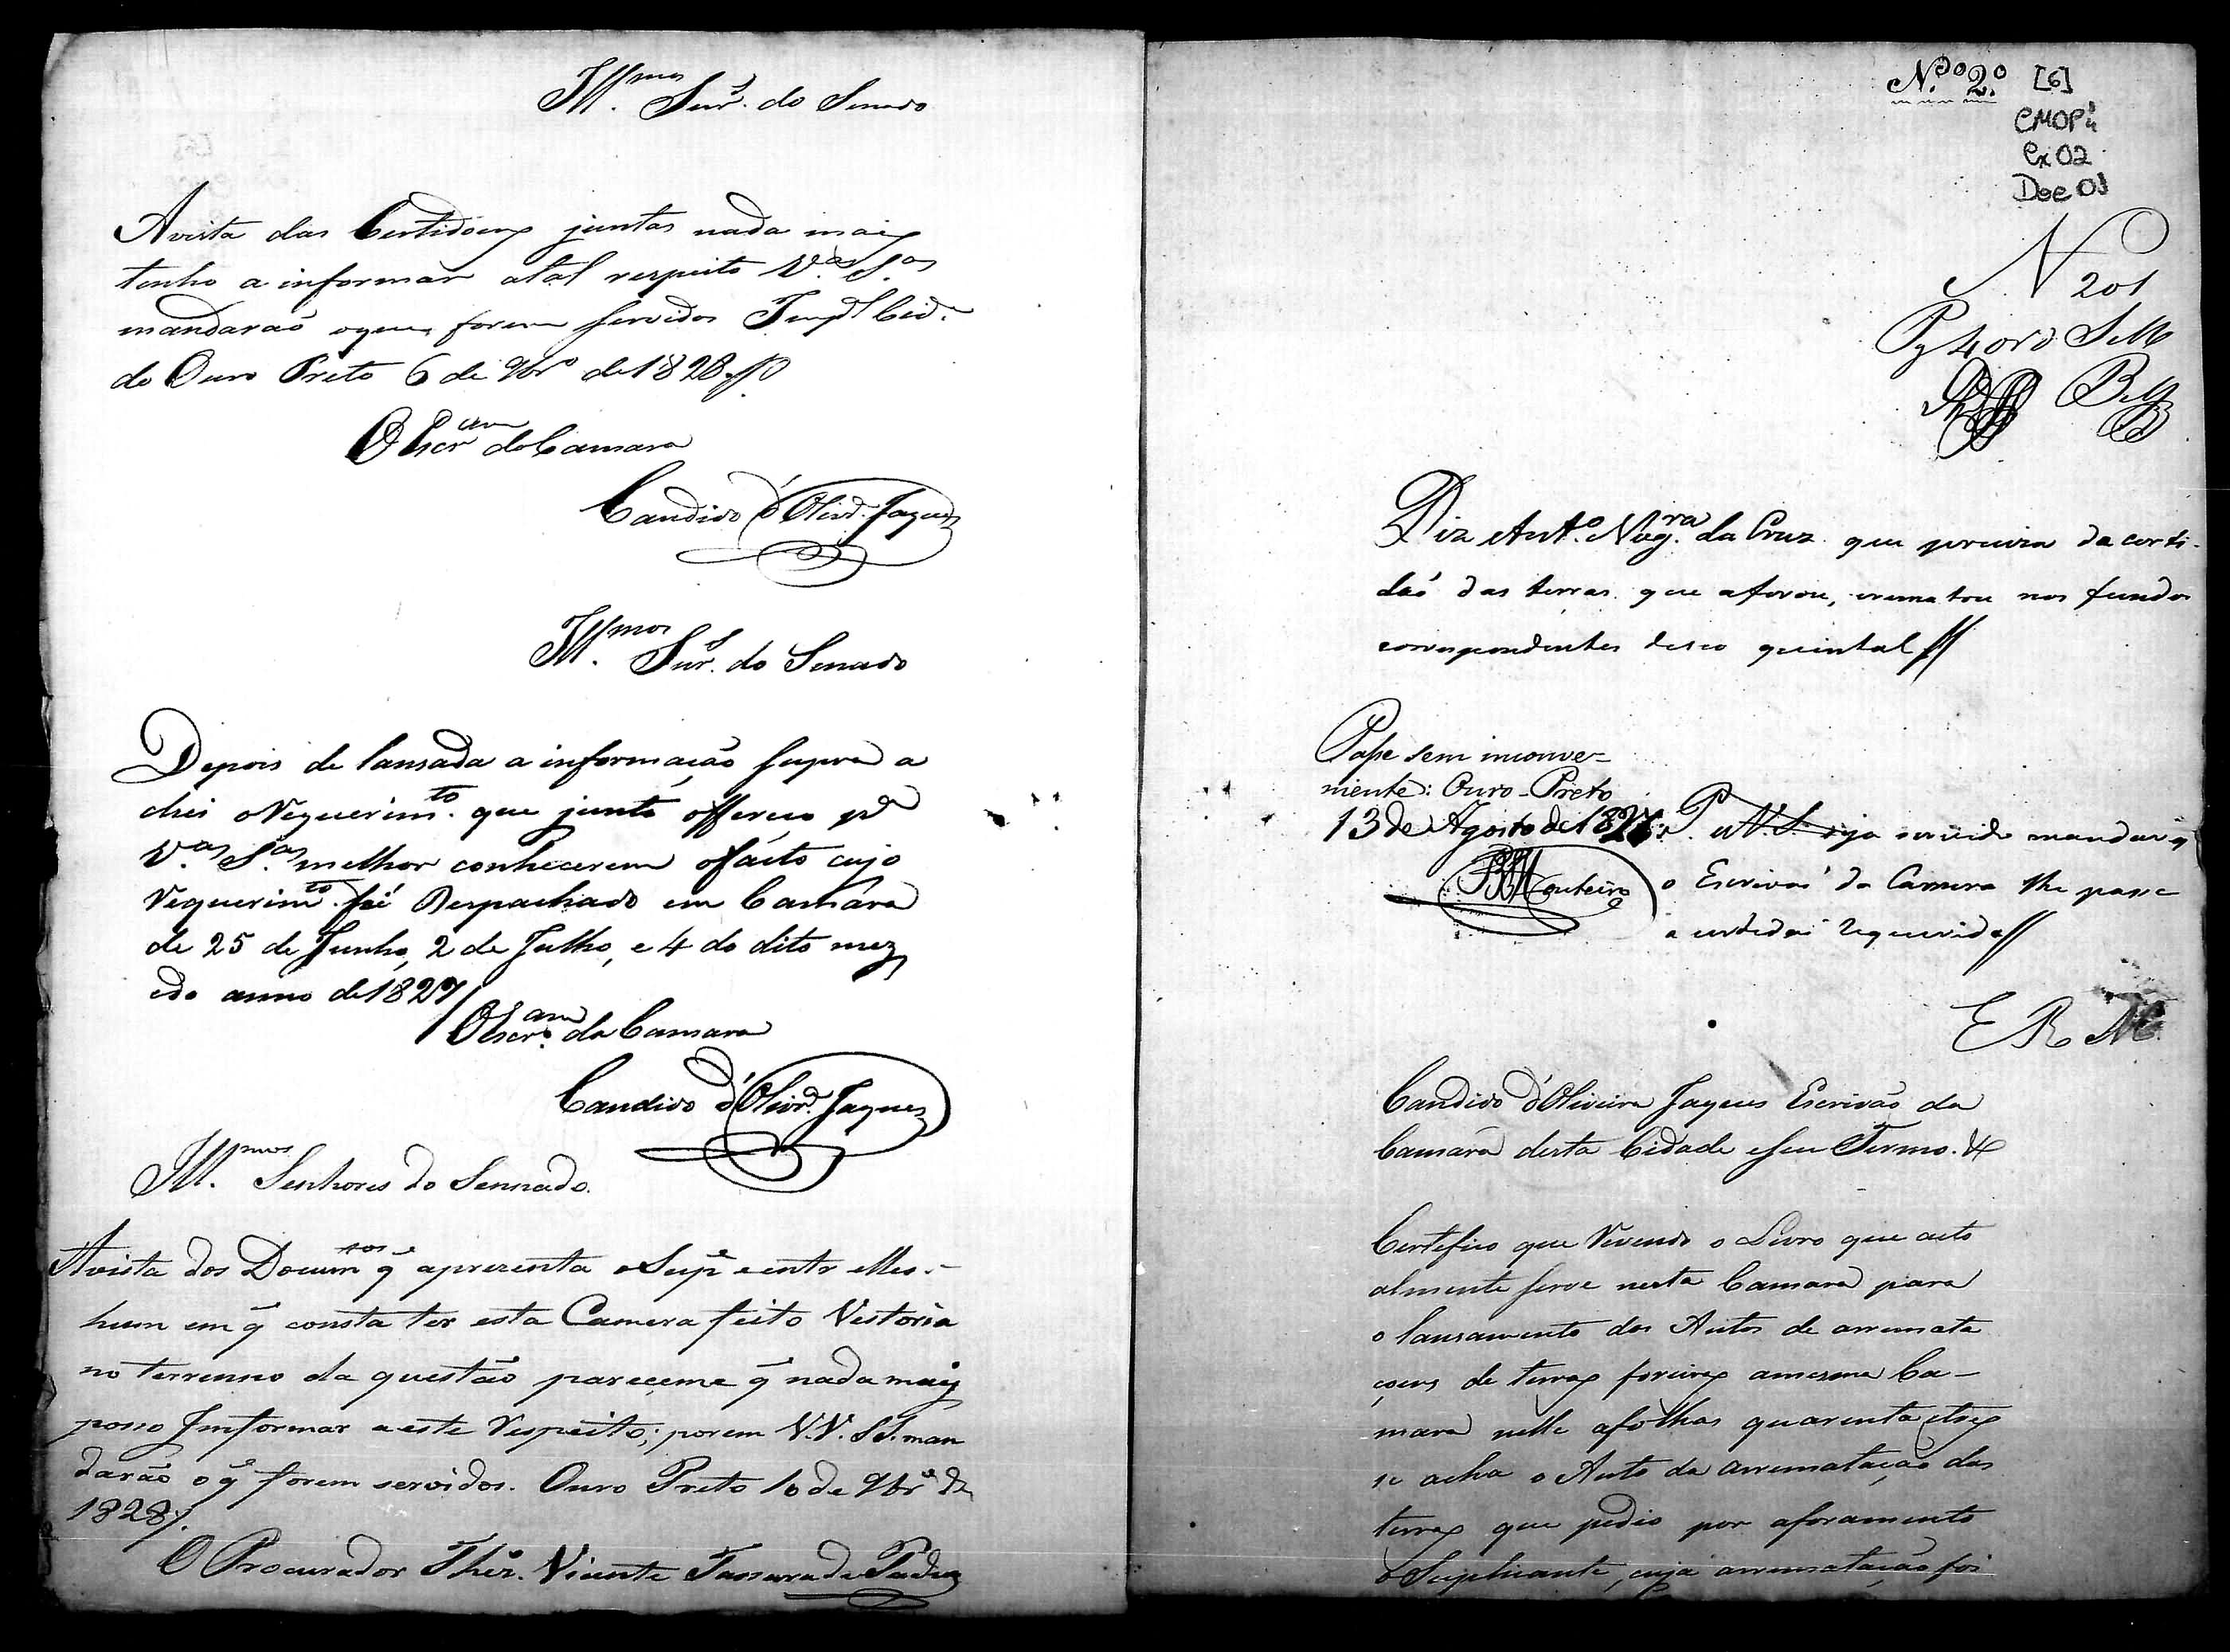 Ill.mos Snr.s do Senado
Avista das Certidoens juntas nada mais
tenho a informar atal respeito V.as S.as
mandaraõ oque forem servidos Imp.l Cid.e
do Ouro Preto 6 de 9br.o de 1828
O Escr.am da Camara
Candido d'Olivr.a Jaques
Ill.mos Snr.s do Senado
Depois de lansada a informação supra a
chei o Requerim.to que junto offereço p.a
V.as S.as melhor conhecerem ofácto cujo
Requerim.to foi Despachado em Camára
de 25 de Junho, 2 de Julho, e 4 do dito mez
edo anno de 1827
O Escr.am da Camara
Candido d'Olivr.a Jaques
Ill.mos Senhores do Sennado.
Avista dos Docum.tos q̃ aprezenta o Sup.e e entr elles
hum em q̃ consta ter esta Camera feito Vestoria
no terrenno da questão pareceme q̃ nada mais
posso Imformar a este Respeito; porem V.V. S.S. man
darão o q̃ forem servidos. Ouro Preto 10 de 9br.o de
1828
O Procurador Thez. Vicente
N.o 2.o [6]
CMOP
Cx 02
Doc 01
N 201
Pg 40 rs d Sello
Diz Ant.o Nog.ra da Cruz que preciza da certi-
daõ das terras que aforou, erematou nos fundos
correspondentes deseo quintal //
Passe sem inconve-
niente: Ouro-Preto
13 de Agosto de 1827
Monteiro
P. a V. S. seja servido mandar q̃
o Escrivaõ da Camera lhe passe
a certidaõ requerida //
E R M.
Candido d'Oliveira Jaques Escrivão da
Camára desta Cidade eseu Termo. &
Certefico que Revendo o Livro que actu
almente serve nesta Camara para
o lansamento dos Autos de arremata
çoens de terras foreiras amesma Ca-
mara nelle afolhas quarenta etres
se acha o Auto da arrematação das
terras que pedio por aforamento
o Suplicante, cuja arrematação foi